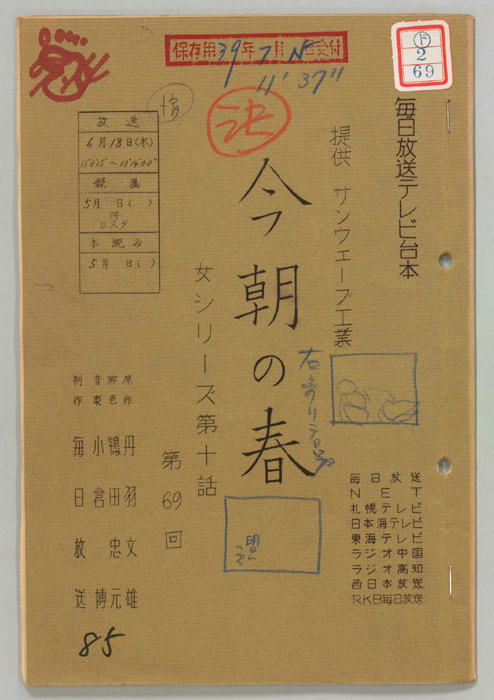 毎日放送テレビ台本
ド
2
69
保存用 39年7月 受付
11' 37"
決
提供 サンウェーブ工業
今朝の春
女シリーズ第十話
第69回
原作 丹羽文雄
脚色 鴨田忠元
音楽 小倉博
制作 毎日放送
放送
6月18日(木)
録画
5月 日( )
本読み
5月 日( )
右寄りテロップ
毎日放送
NET
札幌テレビ
日本海テレビ
東海テレビ
ラジオ中国
ラジオ高知
西日本放送
RKB毎日放送
85